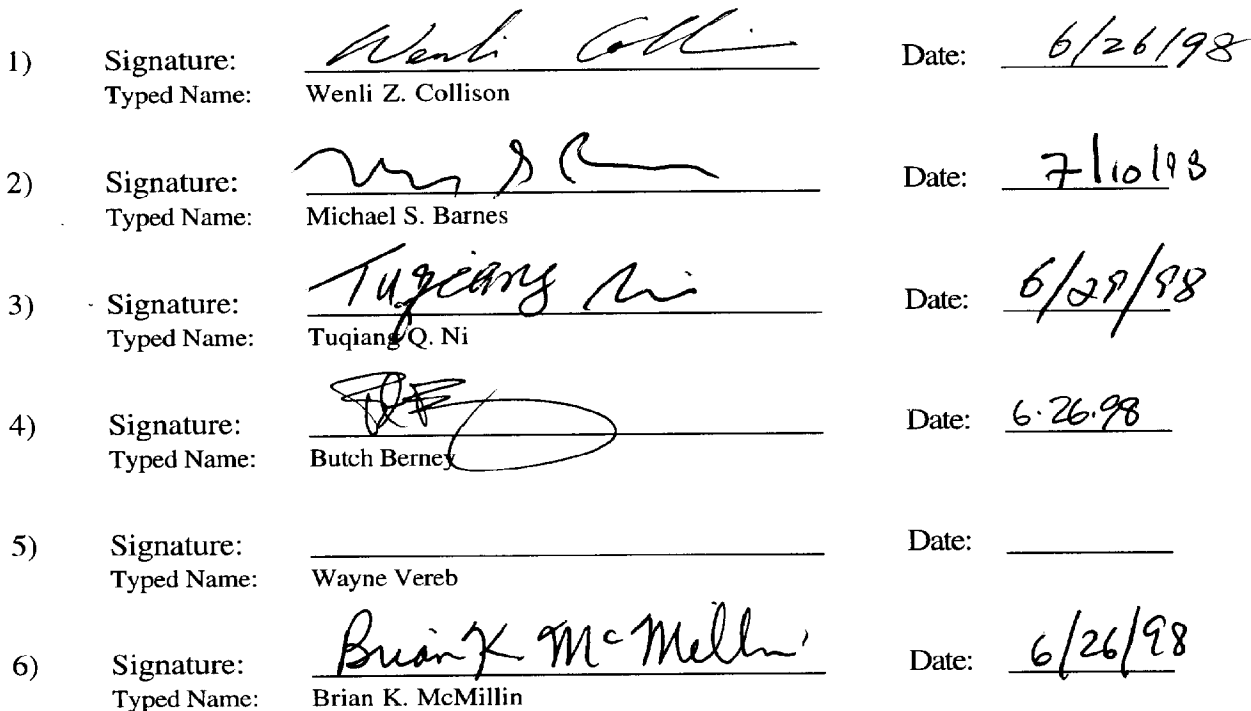 1) Signature: Wenli Colli Date: 6/26/98
Typed Name: Wenli Z. Collison
2) Signature: Date: 7/10/98
Typed Name: Michael S. Barnes
3) Signature: Tuqiang Ni Date: 6/29/98
Typed Name: Tuqiang Q. Ni
4) Signature: Date: 6.26.98
Typed Name: Butch Berney
5) Signature: Date:
Typed Name: Wayne Vereb
6) Signature: Brian K McMillin Date: 6/26/98
Typed Name: Brian K. McMillin